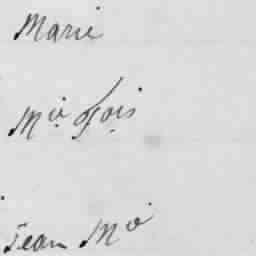 Marie
Mie Fois
Jean Mie